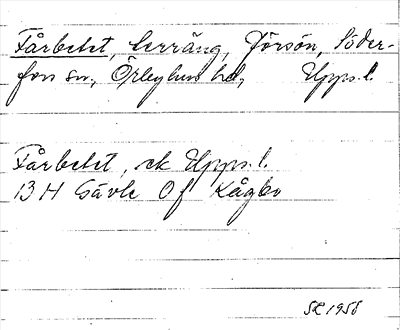 Fårbetet, terräng, Jörsön, Söder-
fors sn, Örbyhus hd, Upps. l.
Fårbetet, ek Upps. l.
13 H Gävle 0 f Kågbo
SR 1958